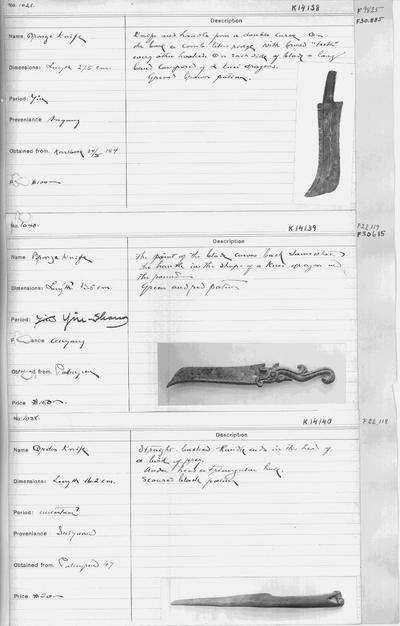 No. 1021.
K14138
F9825
F30.885
Description
Name Bronze Knife
Knife and handle form a double curve. On
the back a comb-like ridge with broad "teeth"
every other hooked. On each side of blade a long
band composed of 2 K'uei dragons.
Green brown patina.
Dimensions: Length 27.5 cm.
Period: Yin
Proveniance Anyang
Obtained from.
$100—
No. 1040.
K14139
F22119
Description
Name Bronze Knife
The point of the blade curves back somewhat,
the handle in the shape of a K'uei dragon
Green and red patina
Dimensions: Length
Period: Yin-Shang
Anyang
Obtained from. Palmgren
Price $150.—
No. 1038.
K14140
F22.118
Description
Name Ordos Knife
Straight-backed. Handle ends in the head of
a bird of prey.
Under head a triangular hole.
Scoured black patina
Dimensions: Length 16.2 cm.
Period: uncertain
Provenance: Suiyuan
Obtained from. Palmgren 47
Price $30—